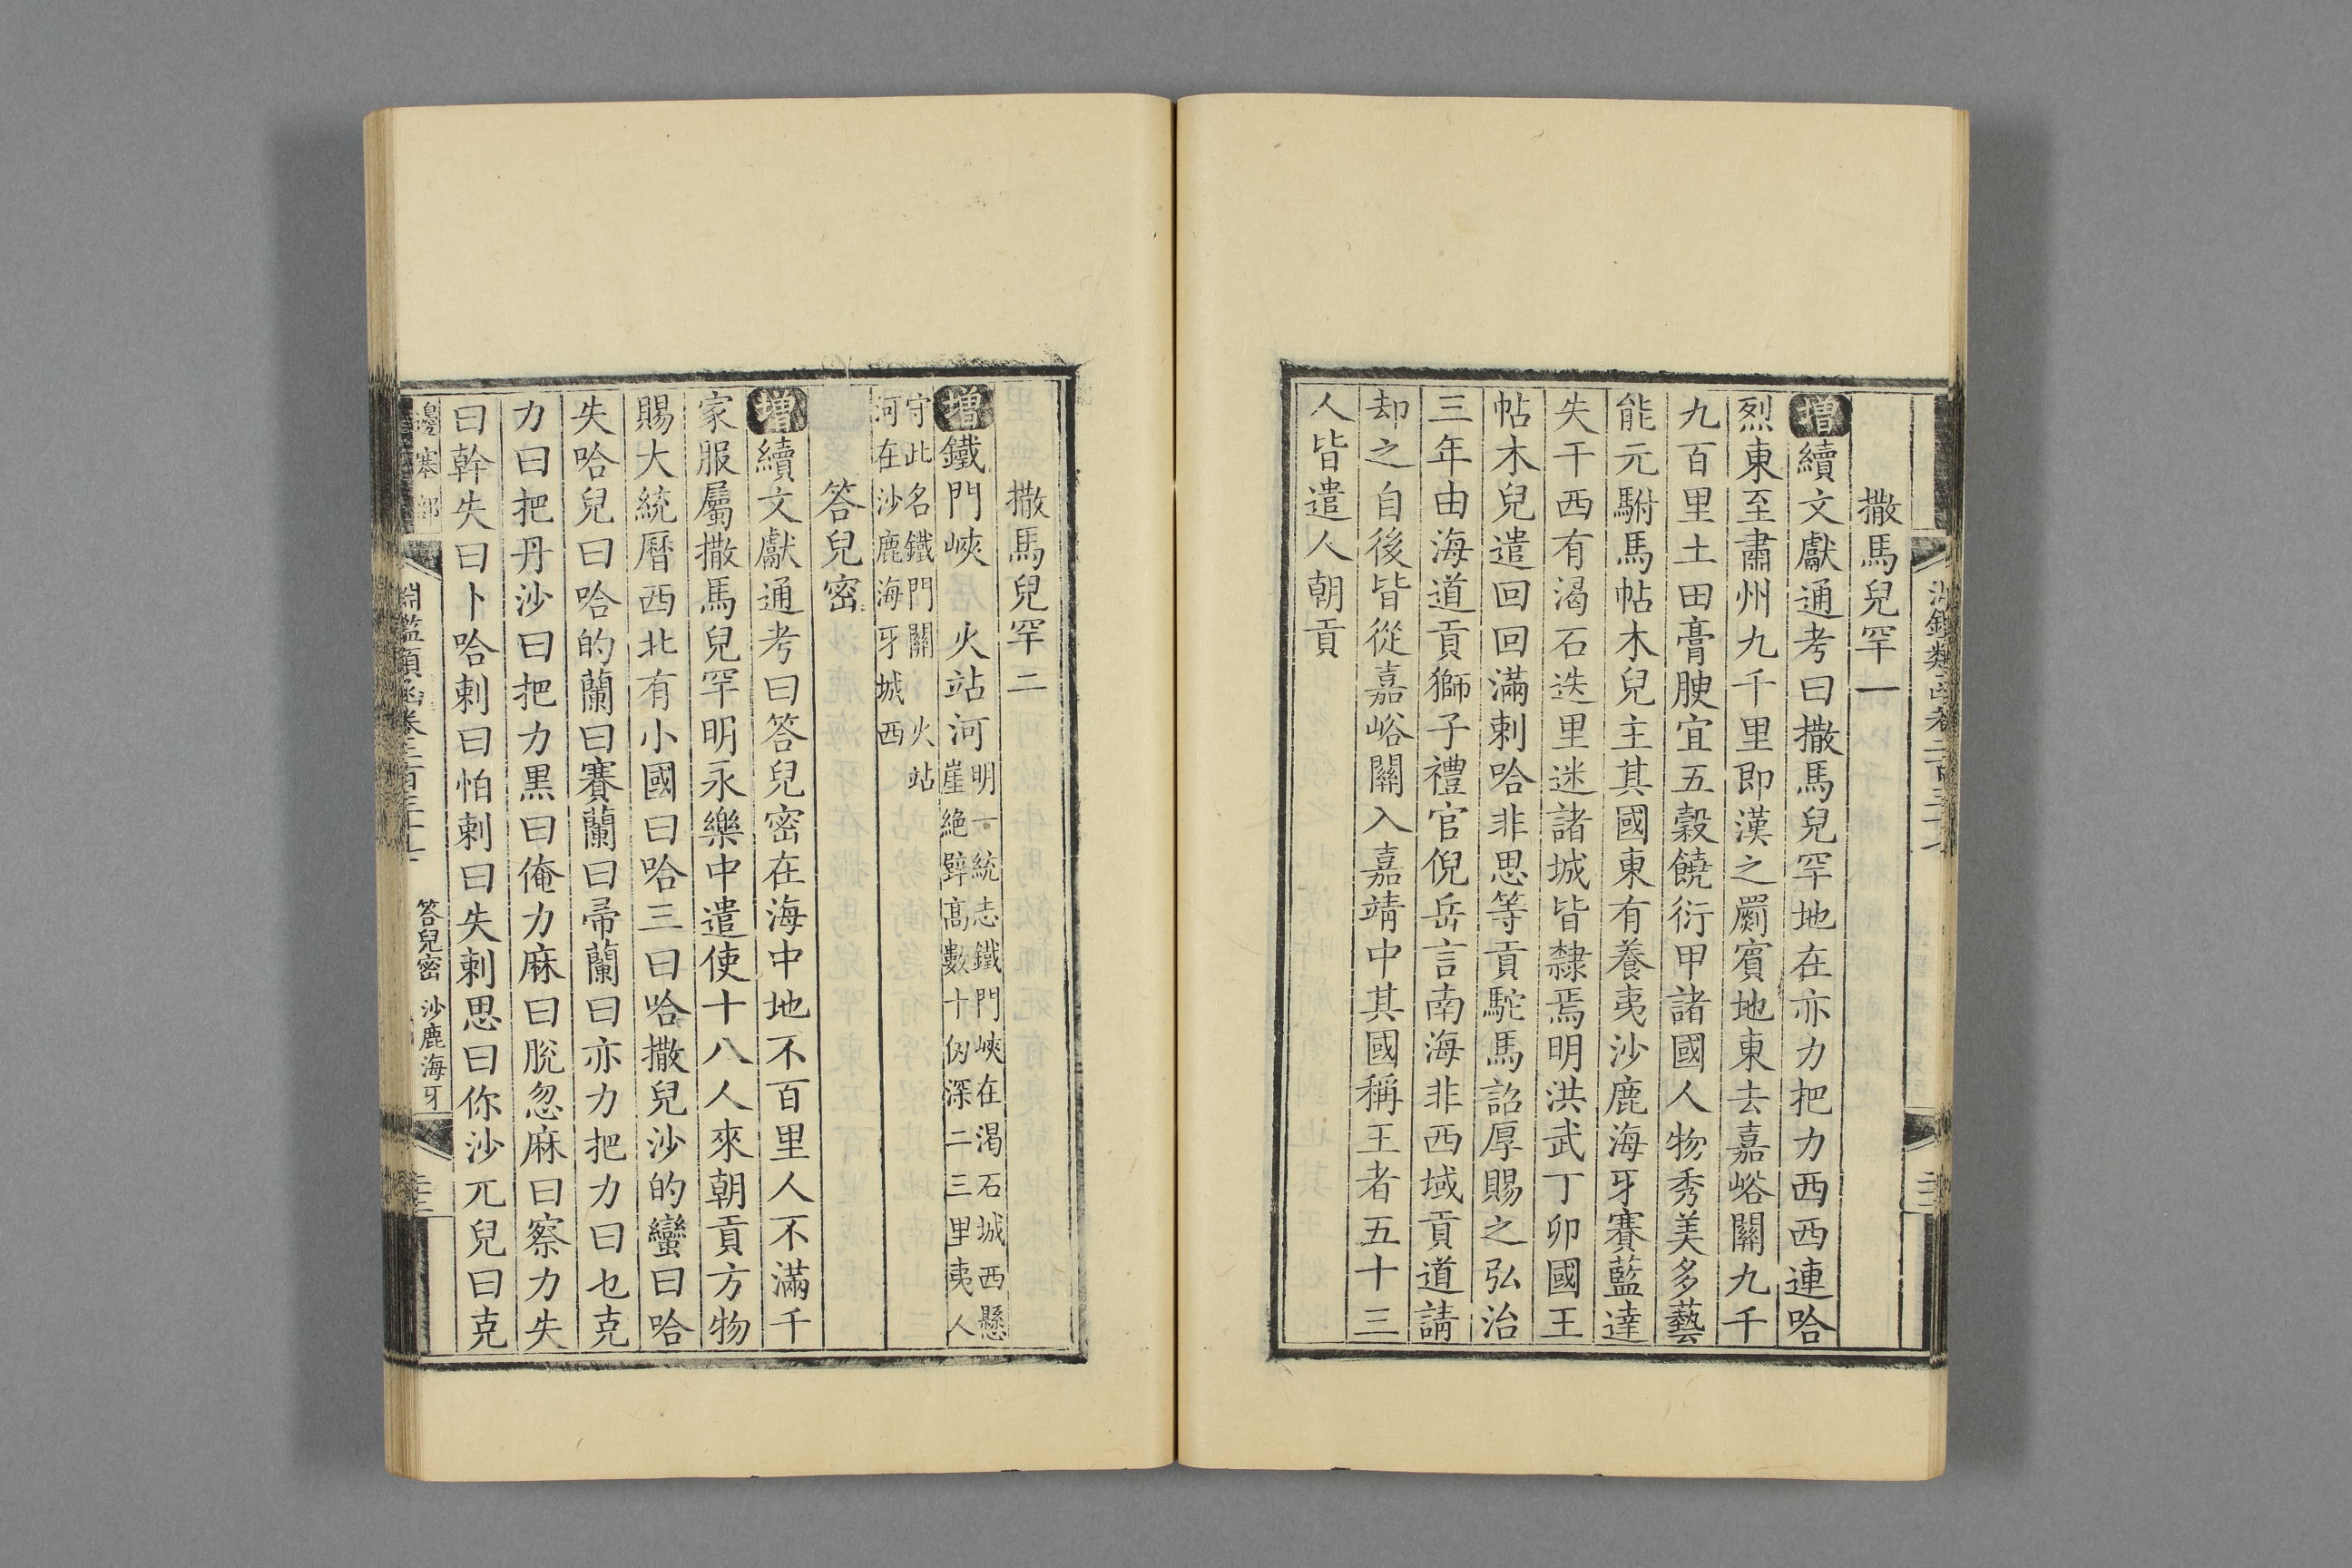 撒馬兒罕一
增續文獻通考曰撒馬兒罕地在亦力把力西西連哈
烈東至肅州九千里即漢之罽賓地東去嘉峪關九千
九百里土田膏腴宜五穀饒衍甲諸國人物秀美多藝
能元駙馬帖木兒主其國東有養夷沙鹿海牙賽藍達
失干西有渴石迭里迷諸城皆隸焉明洪武丁卯國王
帖木兒遣回回滿剌哈非思等貢駝馬詔厚賜之弘治
三年由海道貢獅子禮官倪岳言南海非西域貢道請
却之自後皆從嘉峪關入嘉靖中其國稱王者五十三
人皆遣人朝貢
撒馬兒罕二
增鐵門峽 火站河明一統志鐵門峽在渴石城西懸
崖絶壁高數十仭深二三里夷人
守此名鐵門關 火站
河在沙鹿海牙城西
答兒密
增續文獻通考曰答兒密在海中地不百里人不滿千
家服屬撒馬兒罕明永樂中遣使十八人來朝貢方物
賜大統曆西北有小國曰哈三曰哈撒兒沙的蠻曰哈
失哈兒曰哈的蘭曰賽蘭曰帚蘭曰亦力把力曰乜克
力曰把丹沙曰把力黑曰俺力麻曰脫忽麻曰察力失
曰幹失曰卜哈剌曰怕剌曰失剌思曰你沙兀兒曰克
邊塞部
淵鑑類函卷二百三十七
答兒密 沙鹿海牙